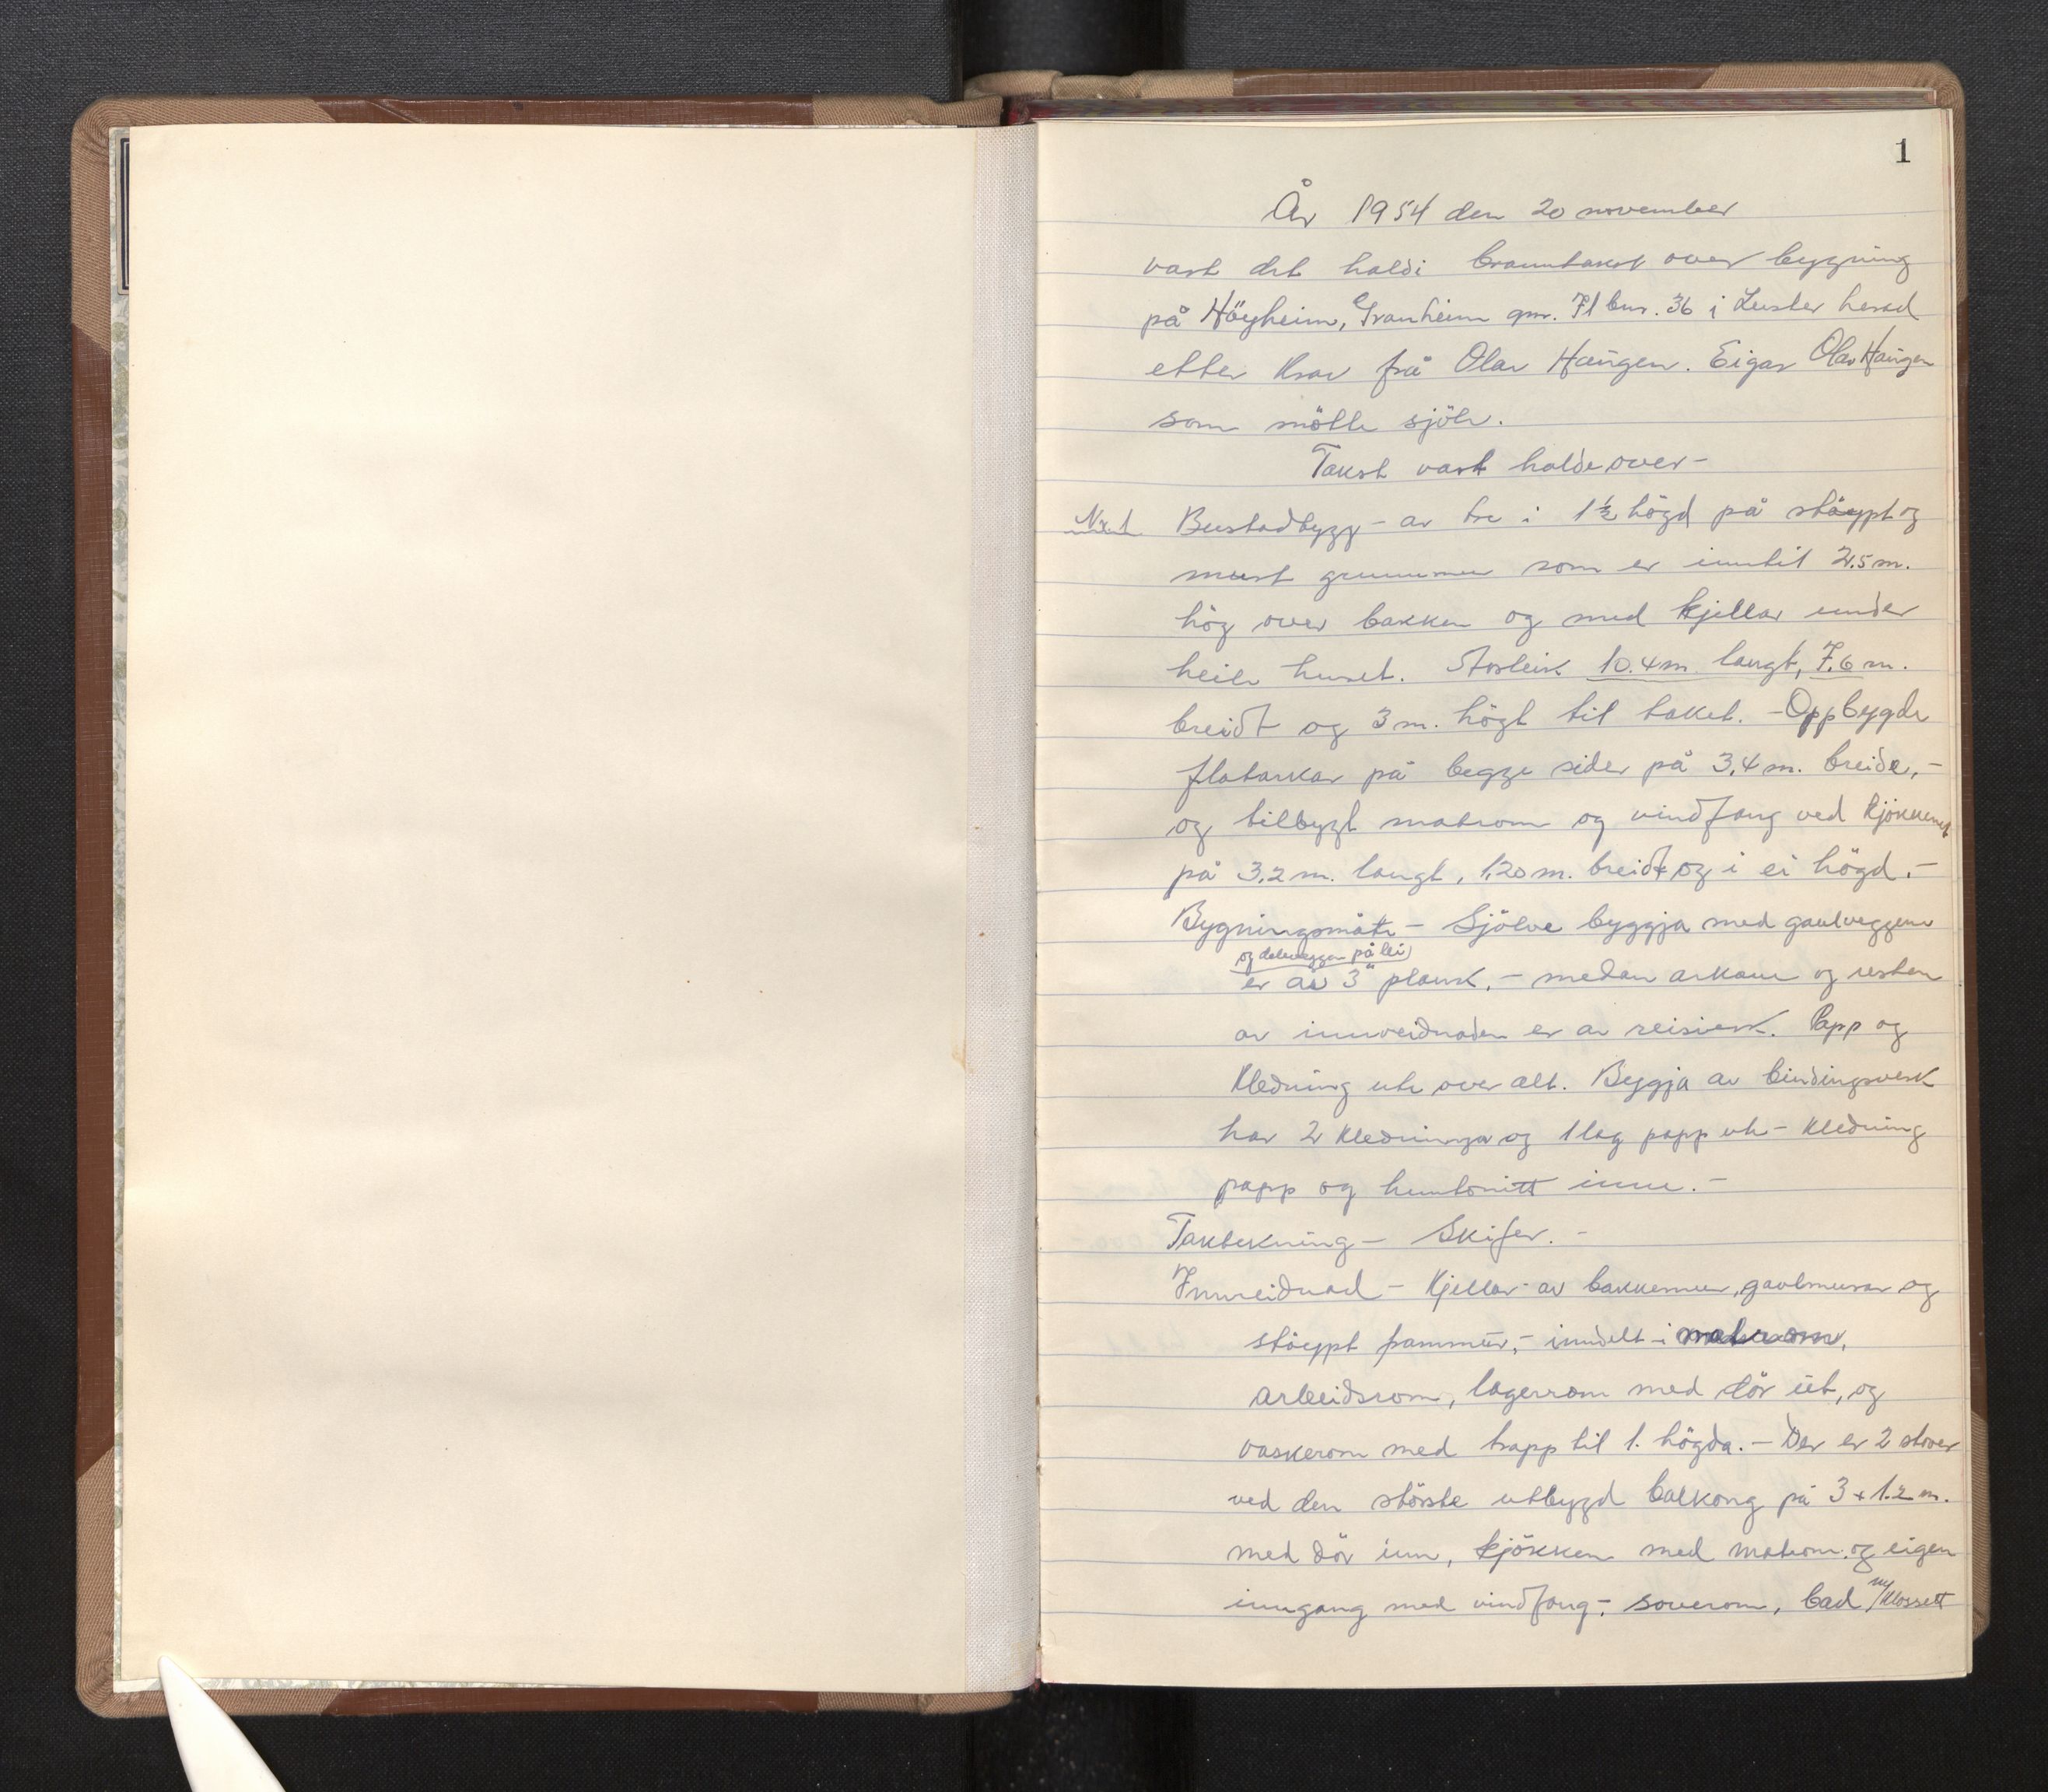 1
År 1954 den 20 november
vart det haldi branntakst over bygning
på Höyheim, Granheim gnr. 71 bnr. 36 i Luster herad
etter krav frå Olav Haugen. Eigar Olav Haugen
som mötte sjölv.
Takst vart halde over –
Nr. 1 Bustadbygg – av tre i 1½ högd på stöypt og
murt grunnmur som er inntil 2.5 m.
hög over bakken og med kjellar under
heile huset. Storleik 10.4 m langt, 7,6 m.
breidt og 3 m. högt til taket. – Oppbygde
flatarkar på begge sider på 3,4 m. breide, –
og tilbygt matrom og vindfang ved kjökkenet
på 3,2 m. langt, 1,20 m. breidt og i ei högd. –
Bygningsmåte – Sjölve byggja med gavlveggene
og deleveggen på lei
er av 3" plank, – medan arkane og resten
av innreidnaden er av reisverk. Papp og
kledning ute over alt. Byggja av bindingsverk
har 2 kledninga og 1 lag papp ute – kledning
papp og huntonitt inne. –
Taktekning – Skifer. –
Innreidnad – Kjellar av bakkemur, gavlmurar og
stöypt frammur, – inndelt i matrom,
arbeidsrom, lagerrom med dör út, og
vaskerom med trapp til 1. högda. – Der er 2 stover
ved den störste utbygd balkong på 3 x 1.2 m.
med dör inn, kjökken med matrom og eigen
inngang med vindfang –, soverom, bad m/klossett